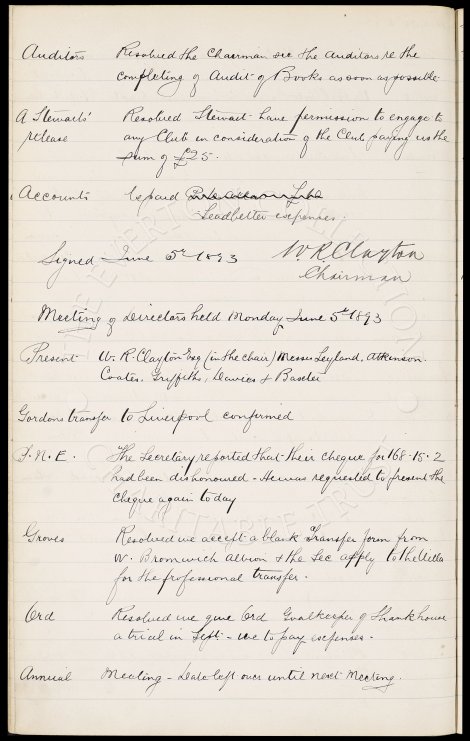 Auditors Resolved the Chairman see the Auditors re the
completing of Audit of Books as soon as possible
A Stewarts' Resolved Stewart have permission to engage to
release any Club in consideration of the Club paying us the
sum of £25.
Accounts be paid
Leadbetter expenses.
Signed June 5th 1893 W.R. Clayton
Chairman
Meeting of Directors held Monday June 5th 1893
Present W. R. Clayton Esq (in the chair) Messrs Leyland, Atkinson.
Coates, Griffiths, Davies & Baxter
Gordons transfer to Liverpool confirmed
F.N.E. The Secretary reported that their cheque for 168-15-2
had been dishonoured - He was requested to present the
cheque again today
Groves Resolved we accept a blank Transfer form from
W. Bromwich Albion & the Sec apply to the Villa
for the professional transfer.
Ord Resolved we give Ord Goalkeeper of Shankhouse
a trial in Sept - we to pay expenses.
Annual Meeting - Date left over until next Meeting.